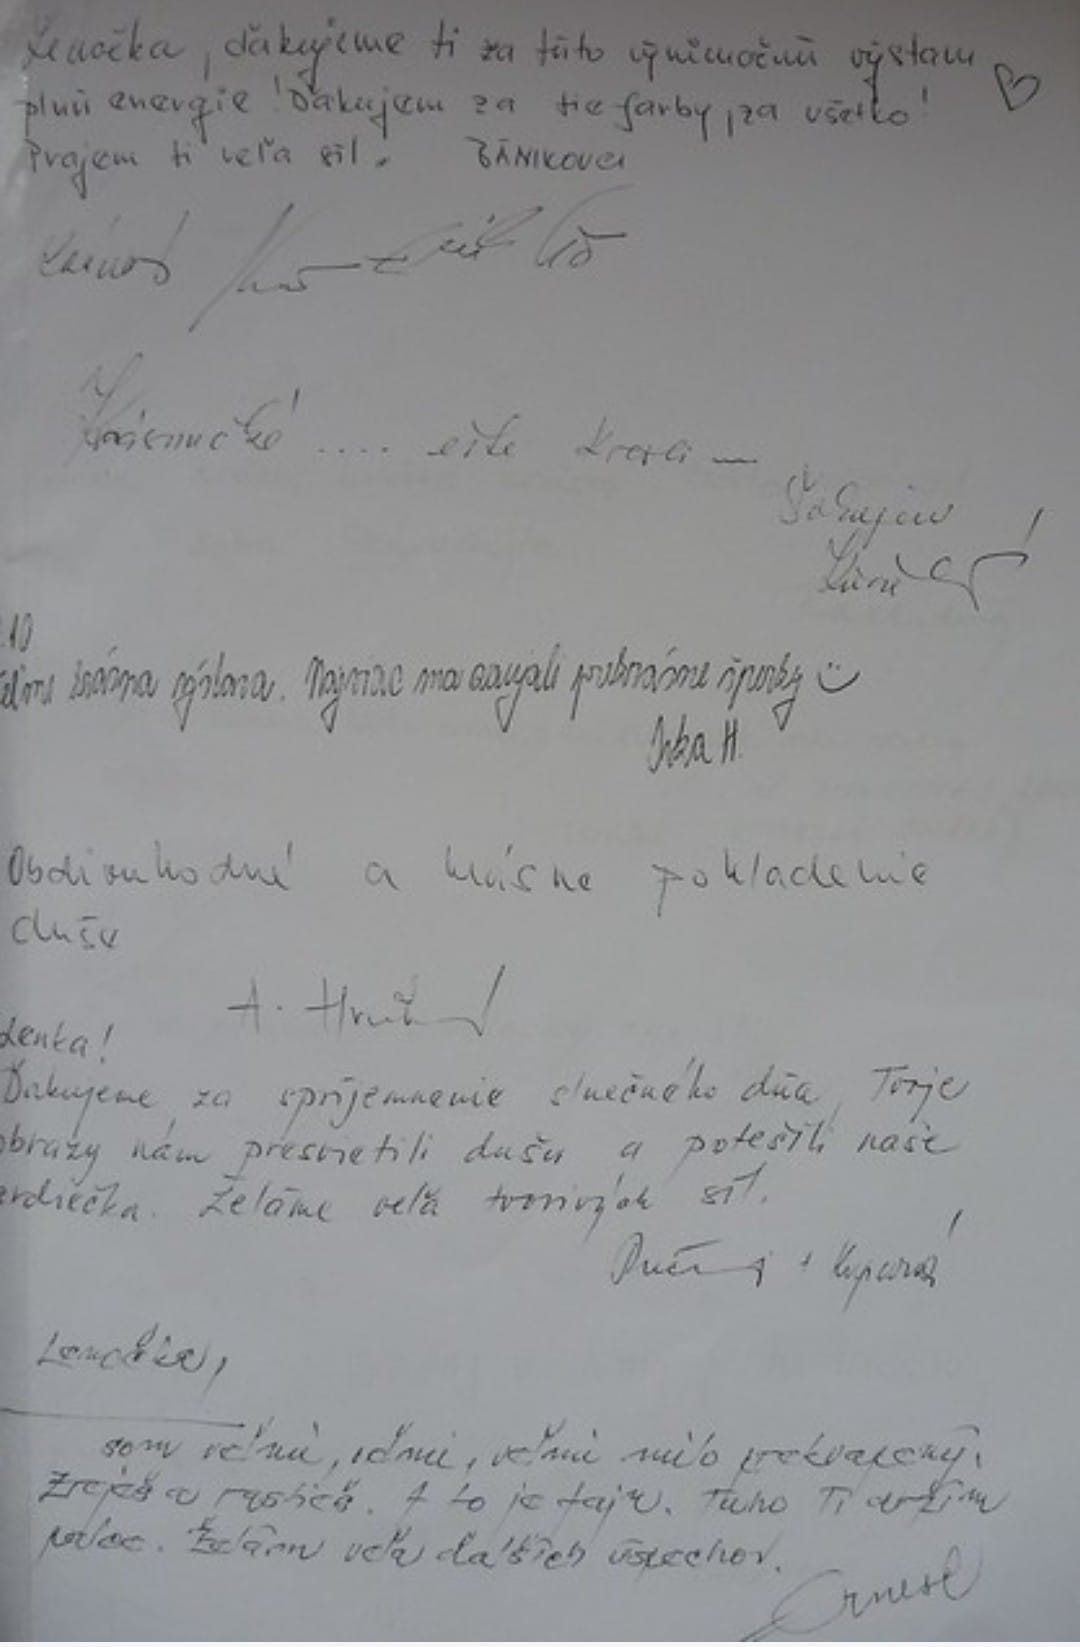 Lenočka, ďakujeme ti za túto výnimočnú výstavu
plnú energie! Ďakujem za tie farby, za všetko!
Prajem ti veľa síl. BÁNIKOVCI
.... ešte krajší
Ďakujem
.10
Veľmi krásna výstava. Najviac ma zaujali prekrásne šperky
Ivka H.
Obdivuhodné a krásne pohladenie
duše
A.
Lenka!
Ďakujeme za spríjemnenie slnečného dňa, Tvoje
obrazy nám presvietili dušu a potešili naše
srdiečka. Želáme veľa tvorivých síl.
+
Lenočka,
som veľmi, veľmi, veľmi milo prekvapený.
Zreješ a rastieš. A to je fajn. Tuho Ti držím
palce. Želám veľa ďalších úspechov.
Ernest